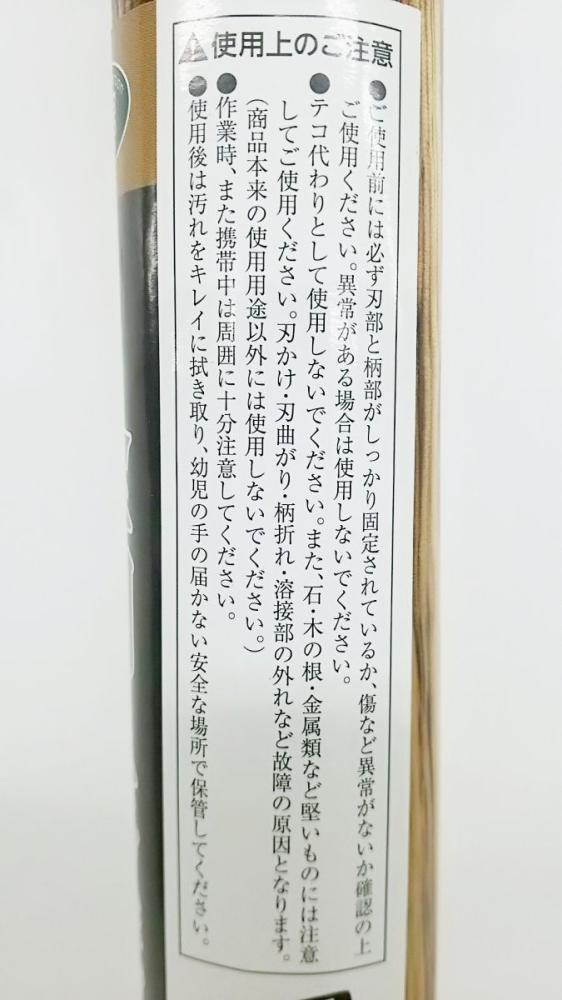 使用上のご注意
●ご使用前には必ず刃部と柄部がしっかり固定されているか、傷など異常がないか確認の上
ご使用ください。異常がある場合は使用しないでください。
●テコ代わりとして使用しないでください。また、石・木の根・金属類など堅いものには注意
してご使用ください。刃かけ・刃曲がり・柄折れ・溶接部の外れなど故障の原因となります。
(商品本来の使用用途以外には使用しないでください。)
●作業時、また携帯中は周囲に十分注意してください。
●使用後は汚れをキレイに拭き取り、幼児の手の届かない安全な場所で保管してください。